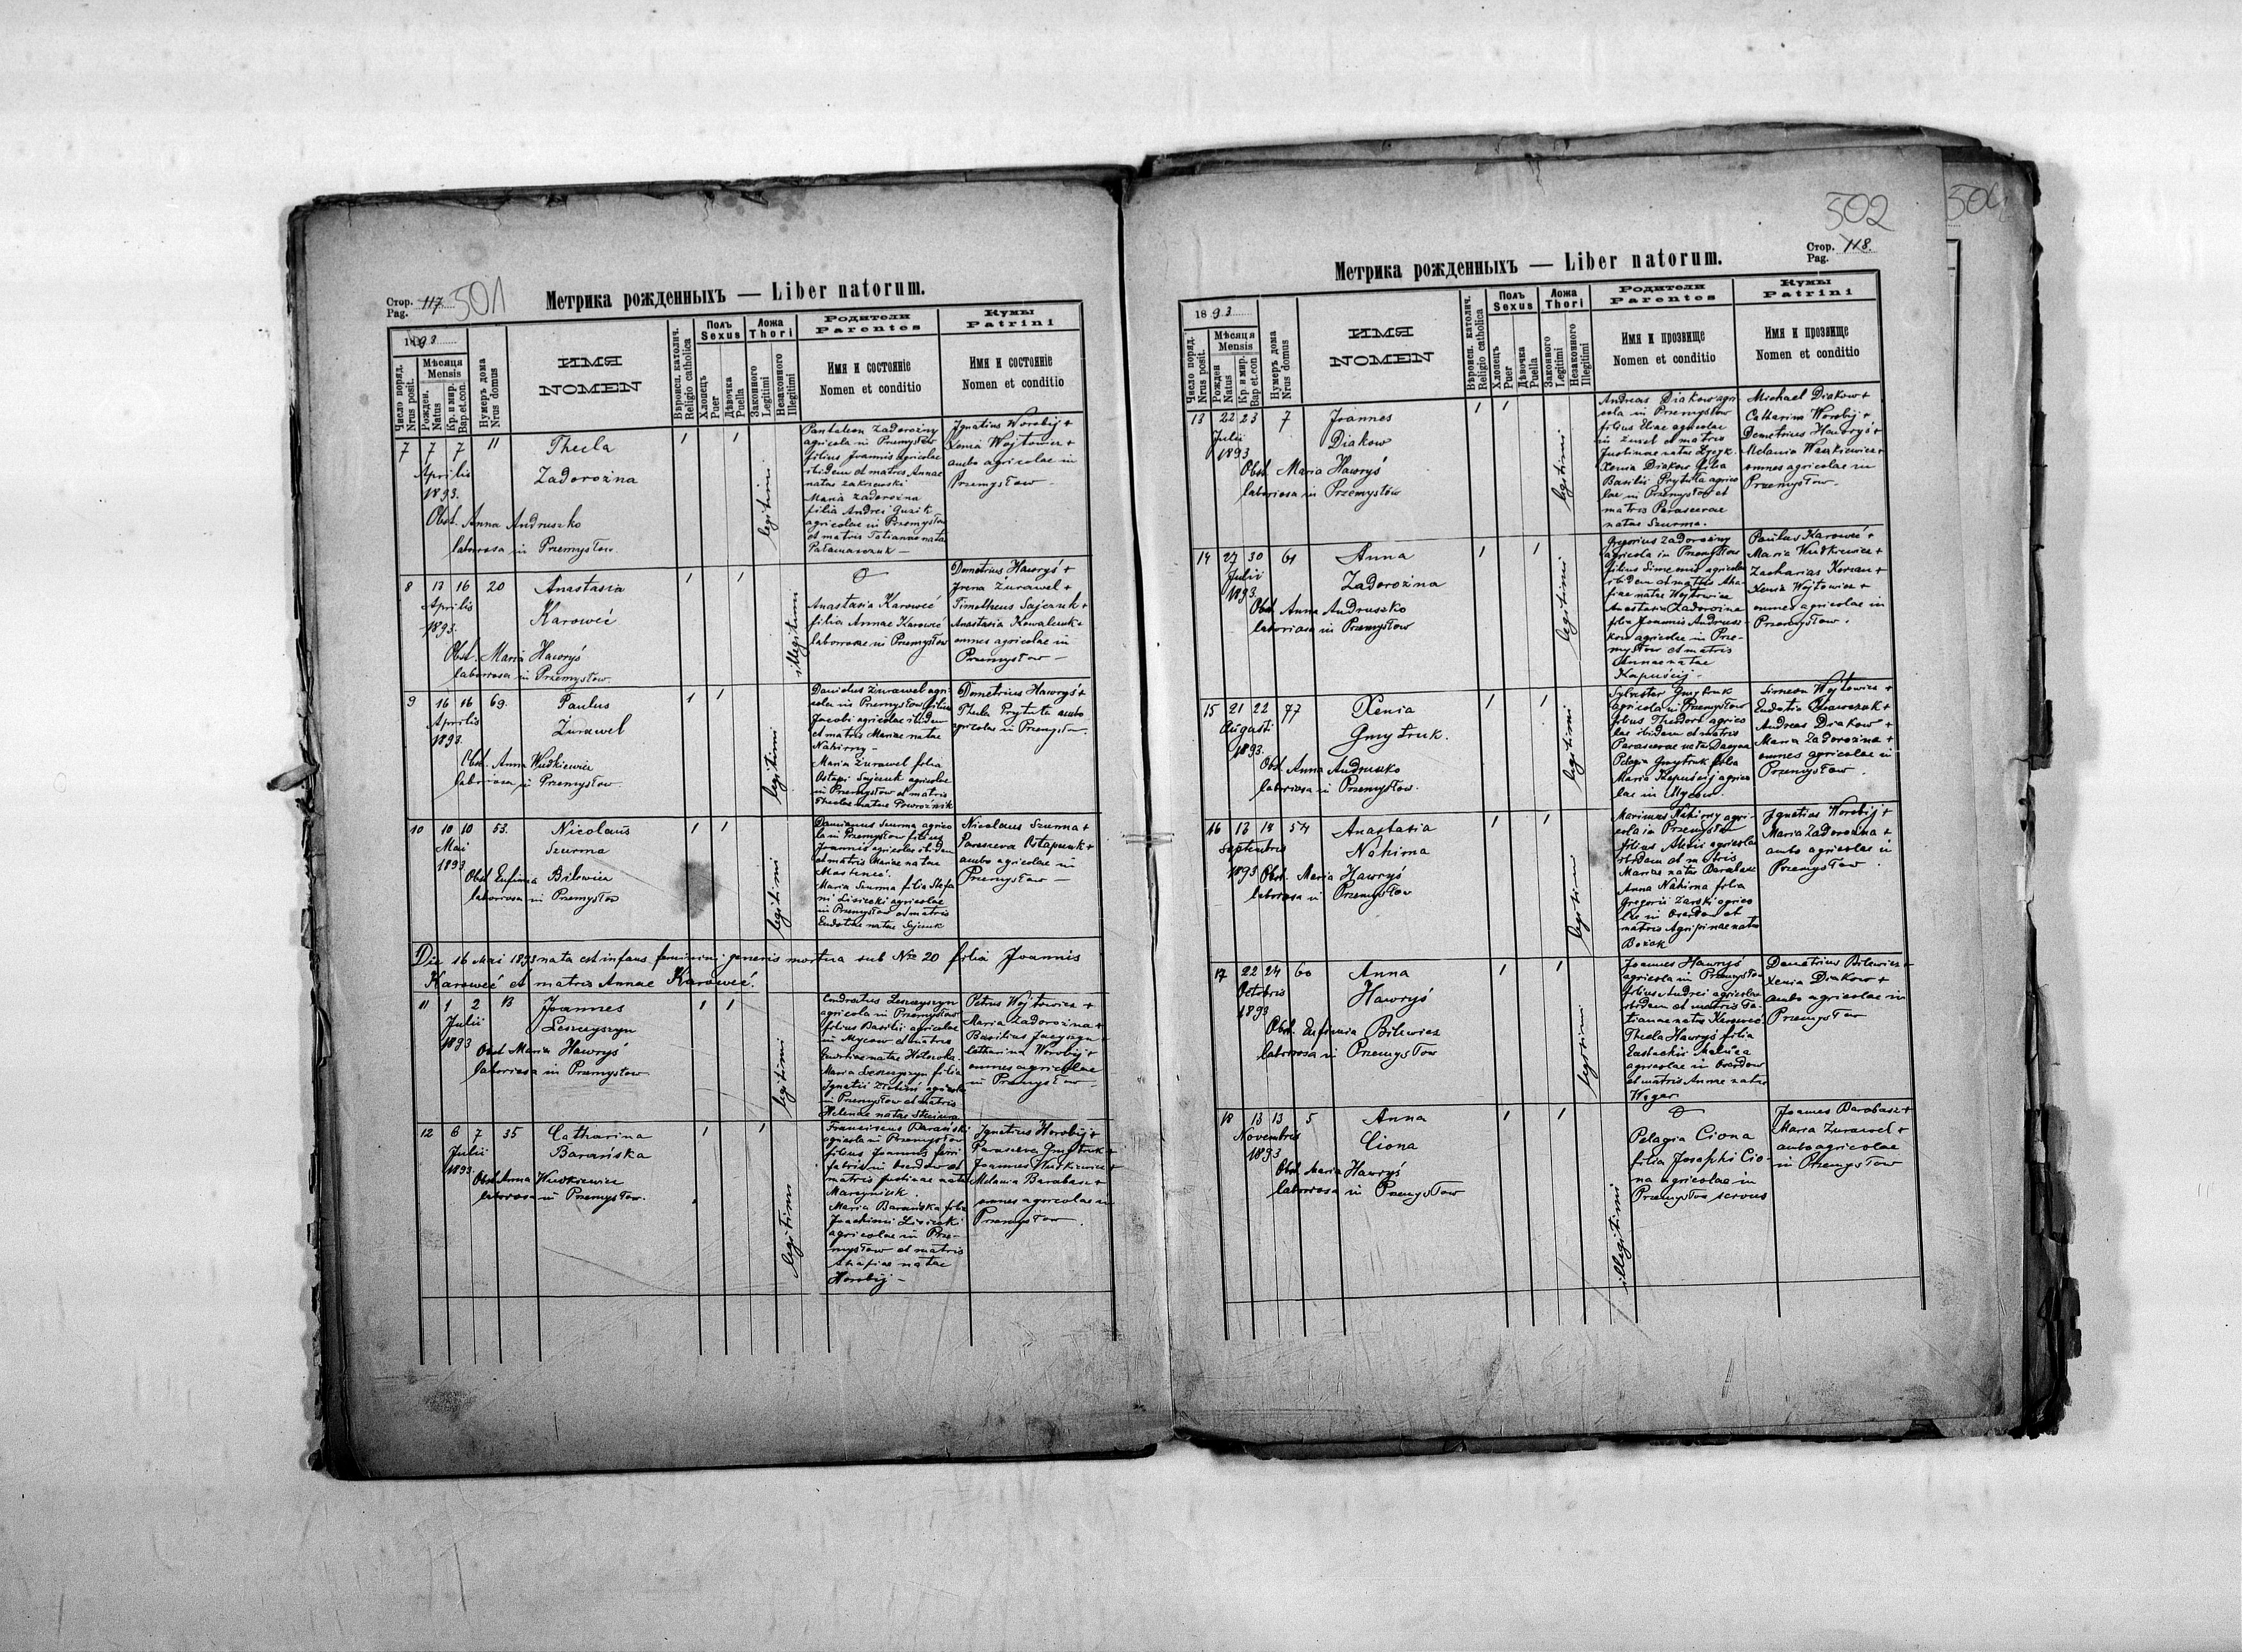 Стор. 117.
Pag.
501
Метрика рожденныхъ — Liber natorum.
1893
Число поряд.
Nrus posit.
Мѣсяця
Mensis
Рожден.
Natus
Кр. и мир.
Bap.et.con.
Нумеръ дома
Nrus domus
ИМЯ
NOMEN
Вѣроисп. католич.
Religio catholica
Полъ
Sexus
Хлопецъ
Puer
Дѣвочка
Puella
Ложа
Thori
Законного
Legitimi
Незаконного
Illegitimi
Родители
Parentes
Имя и состояніе
Nomen et conditio
Кумы
Patrini
Имя и состояніе
Nomen et conditio
7 7 7 11 Thecla 1 1
Aprilis Zadorożna
1893.
Obst. Anna Andruszko
laboriosa in Przemysłow.
legitimi
Pantaleon Zadorożny
agricola in Przemysłow
filius Joannis agricolae
ibidem et matris Annae
natae Zakrzewski
Maria Zadorożna
filia Andrei Guzik
agricolae in Przemysłow
et matris Tatiannae natae
Pałamarczuk —
Ignatius Worobij +
Xenia Wojtowicz +
ambo agricolae in
Przemysłow —
8 13 16 20 Anastasia 1 1
Aprilis Karoweć
1893.
Obst. Maria Hawryś
laboriosa in Przemysłow.
illegitimi
Anastasia Karoweć
filia Annae Karoweć
laboriosae in Przemysłow
Demetrius Hawryś +
Irena Żurawel +
Timotheus Sajczuk +
Anastasia Kowalczuk +
omnes agricolae in
Przemysłow —
9 16 16 69. Paulus 1 1
Aprilis Żurawel
1893.
Obst. Anna Wudkiewicz
laboriosa in Przemysłow
legitimi
Danielus Żurawel agri-
cola in Przemysłow filius
Jacobi agricolae ibidem
et matris Mariae natae
Nahirny —
Maria Żurawel filia
Ostapi Sajczuk agricolae
in Przemysłow et matris
Theclae natae Powroźnik
Demetrius Hawryś +
Thecla Prytuła ambo
agricolae in Przemysłow
10 10 10 53. Nicolaus 1 1
Mai Szurma
1893
Obst. Eufimia Bilewicz
laboriosa in Przemysłow
legitimi
Damianus Szurma agrico
la in Przemysłow filius
Joannis agricolae ibidem
et matris Mariae natae
Maria Szurma filia Stefa
ni Lisiecki agricolae
in Przemysłow et matris
Eudokiae natae Sajczuk
Nicolaus Szurma +
Parasceva Ostapczuk +
ambo agricolae in
Przemysłow —
Die 16 Mai 1893 nata est infans feminini generis mortua sub Nro 20 filia Joannis
Karoweć et matris Annae Karoweć.
11 1 2 13 Joannes 1 1
Julii Leszczyszyn
1893
Obst Maria Hawryś
laboriosa in Przemysłow
legitimi
Leszczyszyn
agricola in Przemysłow
filius Basilii agricolae
in Mycow et matris
Maria Leszczyszyn filia
Ignatii agricolae
in Przemysłow et matris
Helenae natae
Petrus Wojtowicz +
Maria Zadorożna +
Basilius
Catharina Worobij +
omnes agricolae
in Przemysłow
12 6 7 35 Catharina 1 1
Julii Barańska
1893.
Obst Anna Wudkiewicz
laboriosa in Przemysłow.
legitimi
Franciscus Barański
agricola in Przemysłow
filius Joannis ferri
fabri in et
matris Justinae natae
Maria Barańska filia
Joachimi Lisiecki
agricolae in Prze-
mysłow et matris
Ahafiae natae
Worobij —
Ignatius Worobij +
Parasceva Gmytruk +
Joannes Wudkiewicz +
Melania Barabasz +
omnes agricolae in
Przemysłow.
502
504
Стор. 118.
Pag.
Метрика рожденныхъ — Liber natorum.
1893
Число поряд.
Nrus posit.
Мѣсяця
Mensis
Рожден
Natus
Кр. и мир.
Bap et.con
Нумеръ дома
Nrus domus
ИМЯ
NOMEN
Вѣроисп. католич.
Religio catholica
Полъ
Sexus
Хлопецъ
Puer
Дѣвочка
Puella
Ложа
Thori
Законного
Legitimi
Незаконного
Illegitimi
Родители
Parentes
Имя и прозвище
Nomen et conditio
Кумы
Patrini
Имя и прозвище
Nomen et conditio
13 22 23 7 Joannes 1 1
Julii Diakow
1893
Obst. Maria Hawryś
laboriosa in Przemysłow
legitimi
Andreas Diakow agri-
cola in Przemysłow
filius Eliae agricolae
in et matris
Justinae natae
Xenia Diakow filia
Basilii Prytuła agrico
lae in Przemysłow et
matris Parascevae
natae Szurma.
Michael Diakow +
Catharina Worobij +
Demetrius Hawryś +
Melania +
omnes agricolae in
Przemysłow.
14 27 30 61 Anna 1 1
Julii Zadorożna
1893
Obst Anna Andruszko
laboriosa in Przemysłow
legitimi
Gregorius Zadorożny
agricola in Przemysłow
filius Simeonis agricolae
ibidem et matris Aha-
fiae natae Wojtowicz
Anastasia Zadorożna
filia Joannis Andrusz-
kow agricolae in Prze-
mysłow et matris
Annae natae
Kapuścij —
Paulus Karoweć +
Maria Wudkiewicz +
Zacharias Korzan +
Xenia Wojtowicz +
omnes agricolae in
Przemysłow.
15 21 22 77 Xenia 1 1
Augusti Gmytruk.
1893.
Obst Anna Andruszko
laboriosa in Przemysłow.
legitimi
Sylvester Gmytruk
agricola in Przemysłow
filius Theodori agrico
lae ibidem et matris
Parascevae natae
Pelagia Gmytruk filia
Maria Kapuścij agrico
lae in Mycow.
Simeon Wojtowicz +
Eudokia +
Andreas Diakow +
Maria Zadorożna +
omnes agricolae in
Przemysłow.
16 13 14 54 Anastasia 1 1
Septembris Nahirna
1893 Obst. Maria Hawryś
laboriosa in Przemysłow
legitimi
Marinus Nahirny agri-
cola in Przemysłow
filius Alexii agricolae
ibidem et matris
Mariae natae Barabasz
Anna Nahirna filia
Gregorii Zarski agrico
lae in et
matris Agripinae natae
Bożek
Ignatius Worobij +
Maria Zadorożna +
ambo agricolae in
Przemysłow.
17 22 24 60 Anna 1 1
Octobris Hawryś
1893
Obst. Eufimia Bilewicz
laboriosa in Przemysłow
legitimi
Joannes Hawryś
agricola in Przemysłow
filius Andrei agricolae
ibidem et matris Ta-
tiannae natae Karoweć
Thecla Hawryś filia
Eustachii
agricolae in et
matris Annae natae
Demetrius Bilewicz +
Xenia Diakow +
ambo agricolae in
Przemysłow
18 13 13 5 Anna 1 1
Novembris Ciona
1893
Obst Maria Hawryś
laboriosa in Przemysłow
illegitimi
Pelagia Ciona
filia Josephi Cio-
na agricolae in
Przemysłow servus
Joannes Barabasz +
Maria Żurawel +
ambo agricolae
in Przemysłow